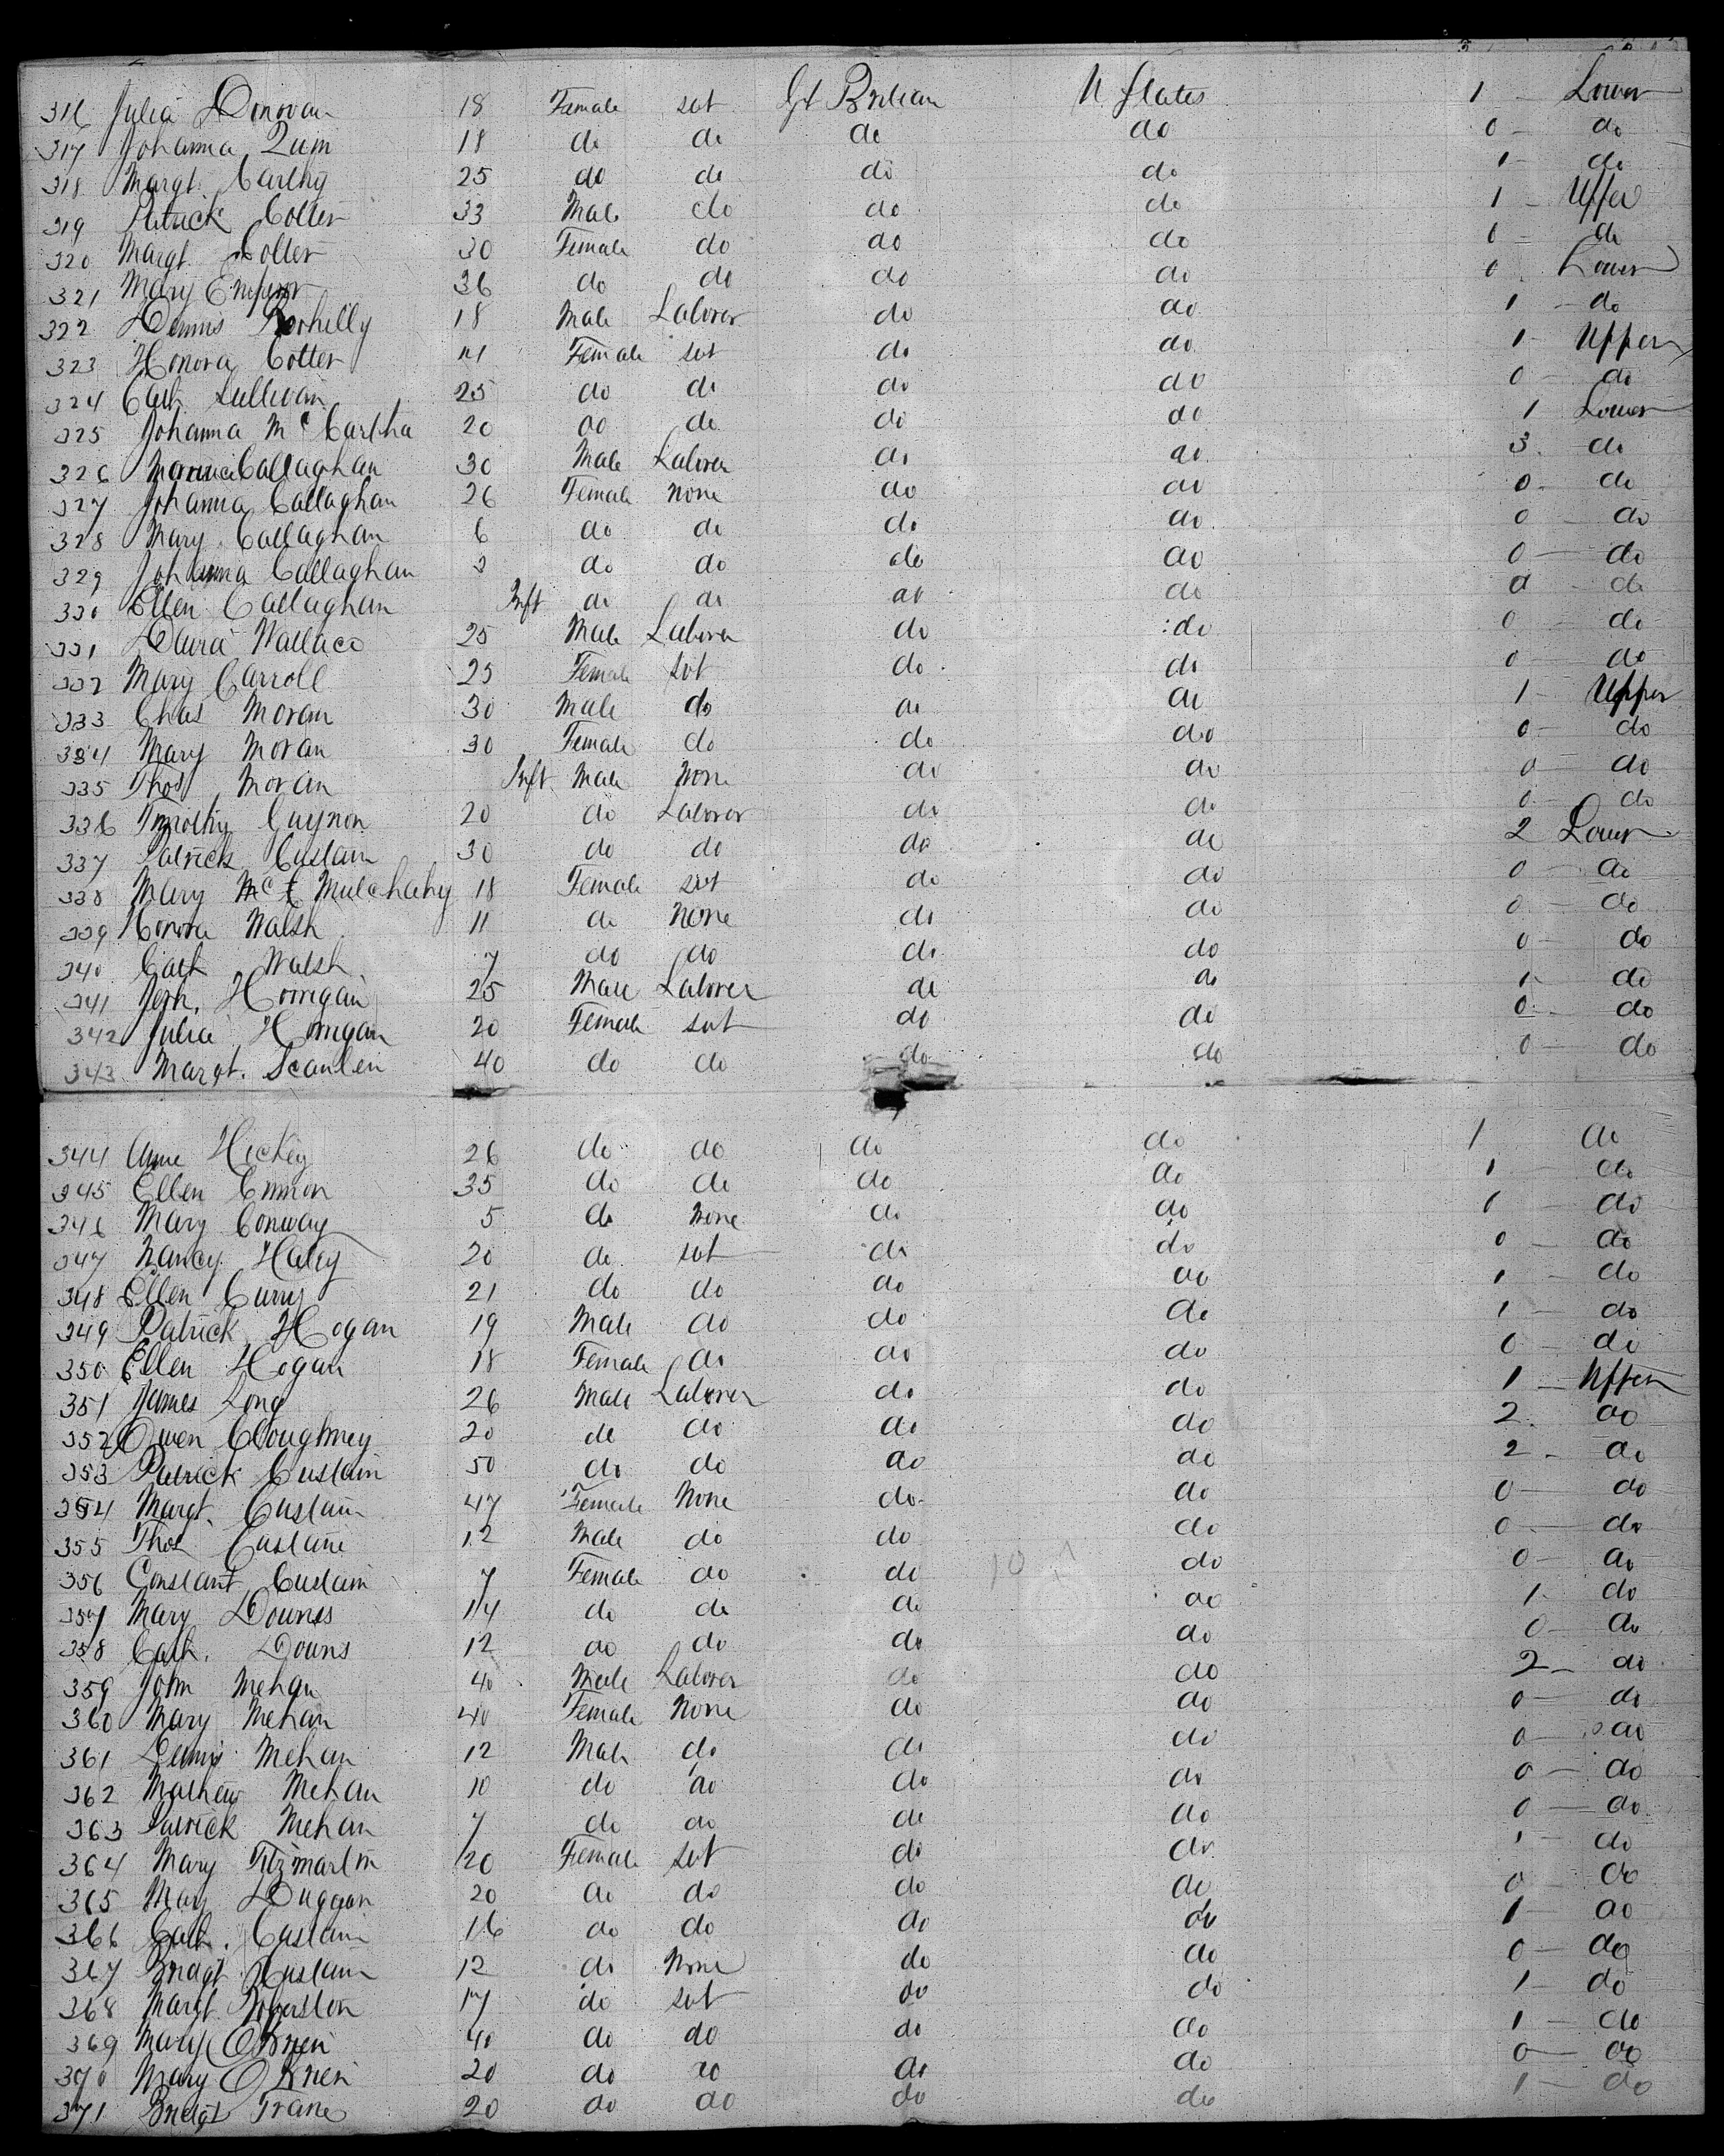 316 Julia Donovan 18 Female svt Gt Britian U States 1 - Lower
317 Johanna Quin 18 do do do do 0 - do
318 Margt. Carthy 25 do do do do 1 - do
319 Patrick Cotter 33 Male do do do 1 - Upper
320 Margt. Cotter 30 Female do do do 0 - do
321 Mary Emperor 36 do do do do 0 - Lower
322 Dennis 18 Male Laborer do do 1 - do
323 Honora Cotter Female svt do do 1 - Upper
324 Cath Sullivan 25 do do do do 0 - do
325 Johanna McCartha 20 do do do do 1 Lower
326 Maurice Callaghan 30 Male Laborer do do 3. do
327 Johanna Callaghan 26 Female None do do 0 - do
328 Mary Callaghan 6 do do do do 0 - do
329 Johanna Callaghan 3 do do do do 0 - do
330 Ellen Callaghan Inft do do do do 0 - do
331 David Wallace 25 Male Laborer do do 0 - do
332 Mary Carroll 25 Female svt do do 0 - do
333 Chas Moran 30 Male do do do 1 - Upper
334 Mary Moran 30 Female do do do 0 - do
335 Thos Moran Inft. Male None do do 0 - do
336 Timothy Guynon 20 do Laborer do do 0 - do
337 Patrick Custain 30 do do do do 2 Lower
338 Mary Mulchahy 18 Female svt do do 0 - do
339 Honora Walsh 11 do None do do 0 - do
340 Cath Walsh 7 do do do do 0 - do
341 Jerh. Horrigan 25 Male Laborer do do 1 - do
342 Julia Horrigan 20 Female svt do do 0 - do
343 Margt. Scanlen 40 do do do do 0 - do
344 Anne Hickey 26 do do do do 1 do
345 Ellen Ennon 35 do do do do 1 - do
346 Mary Conway 5 do None do do 0 - do
347 Nancy Haley 20 do svt do do 0 - do
348 Ellen Curry 21 do do do do 1 - do
349 Patrick Hogan 19 Male do do do 1 - do
350 Ellen Hogan 18 Female do do do 0 - do
351 James Long 26 Male Laborer do do 1 - Upper
352 Owen Cloughney 20 do do do do 2. do
353 Patrick Custain 50 do do do do 2 - do
354 Margt. Custain 47 Female None do do 0 - do
355 Thos Custain 12 Male do do do 0 - do
356 Constant Custain 7 Female do do do 0 - do
357 Mary Downes 14 do do do do 1 - do
358 Cath. Downs 12 do do do do 0 - do
359 John Mehan 40 Male Laborer do do 2 - do
360 Mary Mehan 40 Female None do do 0 - do
361 Dennis Mehan 12 Male do do do 0 - do
362 Mathew Mehan 10 do do do do 0 - do
363 Patrick Mehan 7 do do do do 0 - do
364 Mary Fitzmartin 20 Female svt do do 1 - do
365 Mary Duggan 20 do do do do 0 - do
366 Cath. Custain 16 do do do do 1 - do
367 Bridgt Custain 12 do None do do 0 - do
368 Margt Roberston 17 do svt do do 1 - do
369 Mary OBrien 40 do do do do 1 - do
370 Mary OBrien 20 do do do do 0 - do
371 Bridgt Trane 20 do do do do 1 - do